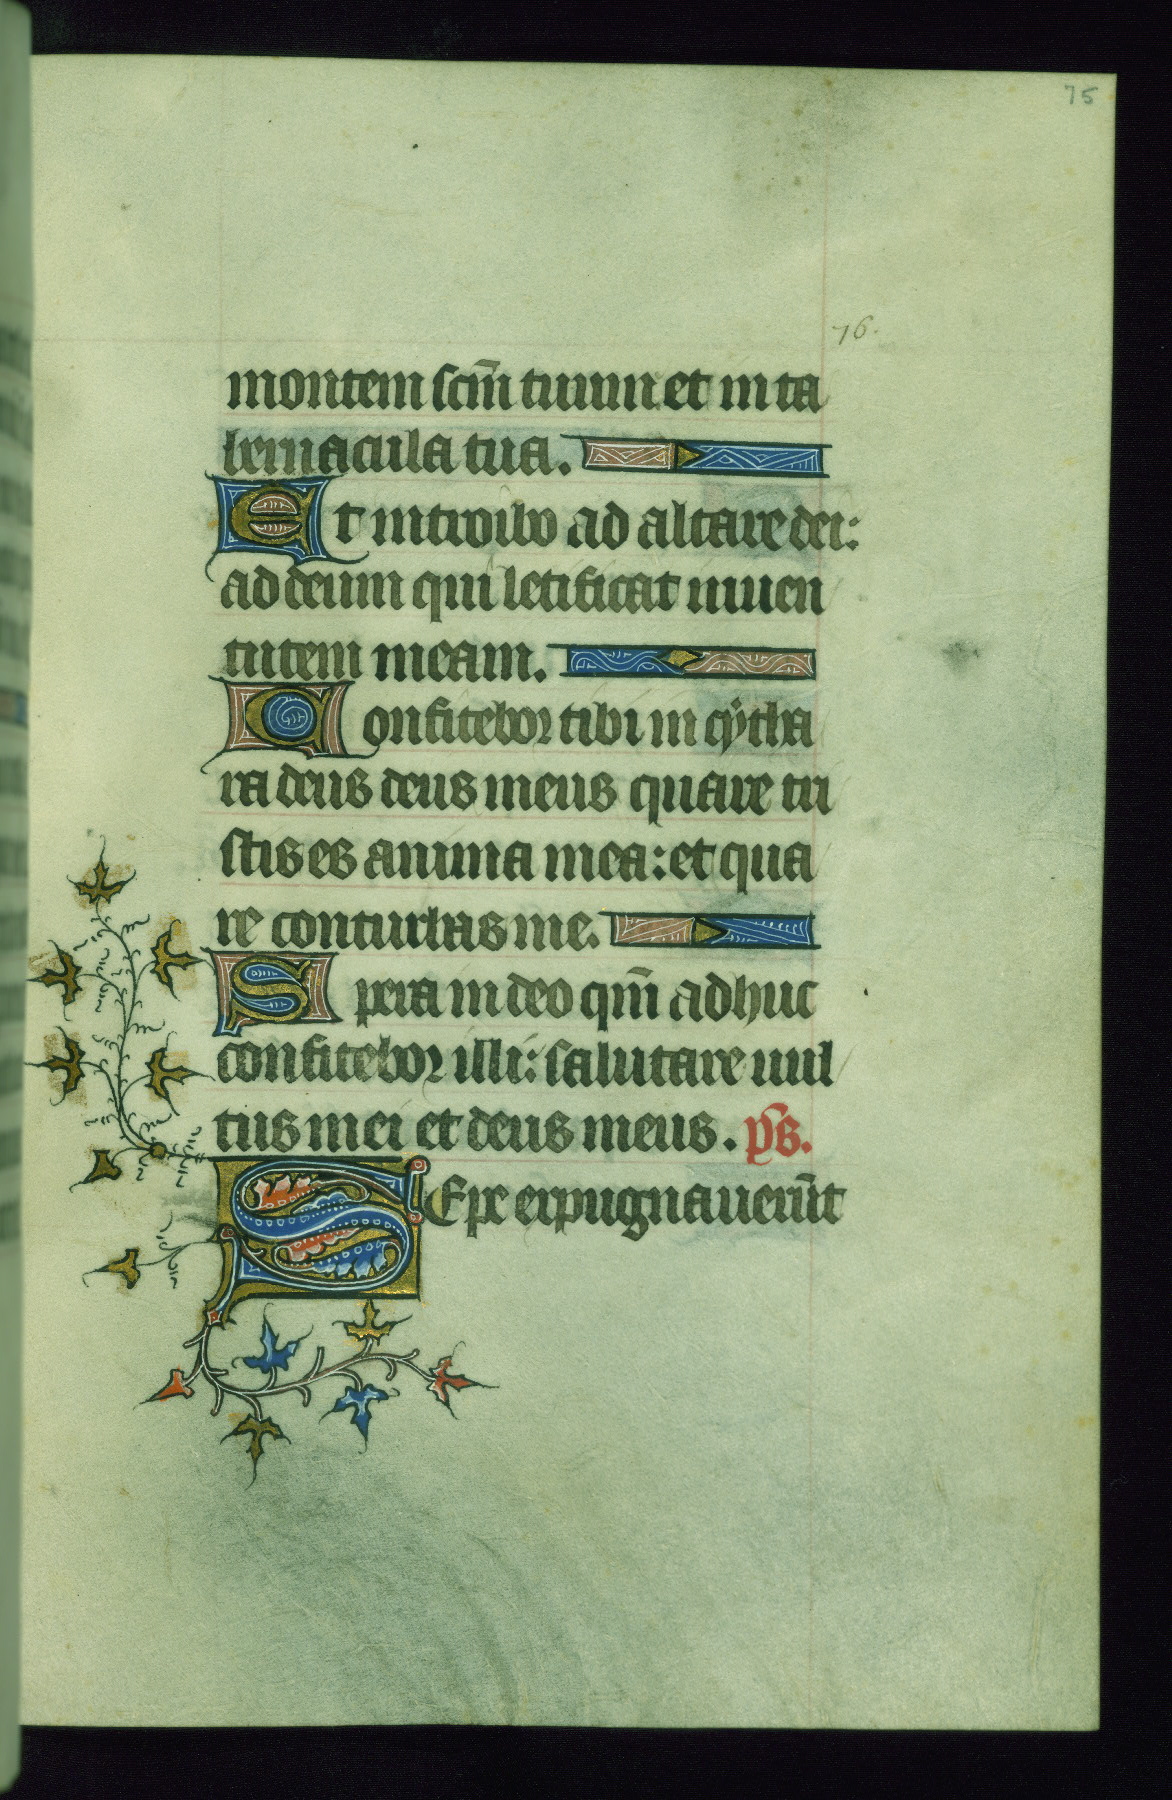 75
76.
montem scm̄ tuum et in ta
bernacula tua.
Et introibo ad altare dei:
ad deum qui letificat iuuen
tutem meam.
Confitebor tibi in cẏtha
ra deus deus meus quare tri
stis es anima mea: et qua
re conturbas me.
Spera in deo qm̄ adhuc
confitebor illi: salutare uul
tus mei et deus meus. p̄s.
Sepe expugnauerūt